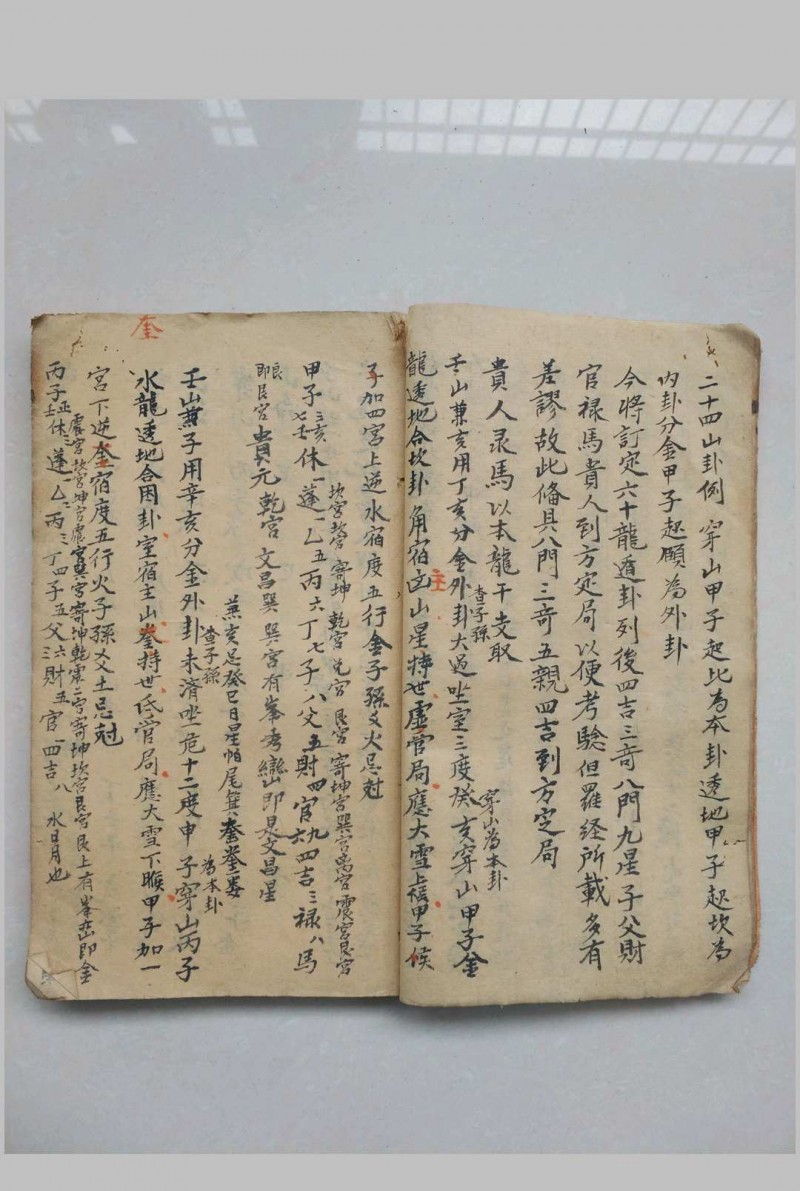 二十四山卦例 穿山甲子起比為本卦透地甲子起坎為
內卦分金甲子起頤為外卦
今將訂定六十龍遁卦列後四吉三奇八門九星子父財
官祿馬貴人到方定局以便考驗但羅経所載多有
差謬故此俻具八門三奇五親四吉到方定局
貴人彔馬以本龍干支取
查子孫
穿山為本卦
壬山兼亥用丁亥分金外卦大過坐室三度癸亥穿山甲子金
主
龍透地合坎卦角宿山星持世虛官局應大雪上甲子候
子加四宮上逆水宿度五行金子孫爻火忌尅
坎宮 寄坤 乾宮兌宮 艮宮 寄坤宮巽宮离宮震宮艮宮
甲子 休一蓬一乙五丙六丁七子八父五財四官九六四吉三祿八馬
即艮宮 貴元 乾宮 文昌巽 巽宮有峯秀巒山即是文昌星
兼亥忌癸巳日星帕尾箕奎奎婁
查子孫
為本卦
壬山兼子用辛亥分金外卦未濟坐危十二度甲子穿山丙子
水龍透地合困卦室宿主山奎持世氐官局應大雪下候甲子加一
奎
宮下逆奎宿度五行火子孫爻土忌尅
震宮坎宮坤宮震宮巽宮寄坤乾震二宮寄坤坎宮艮宮艮上有峯巒即金
丙子 休三蓬一乙二丙三丁四子五父六三財五官一四吉八 水日月也